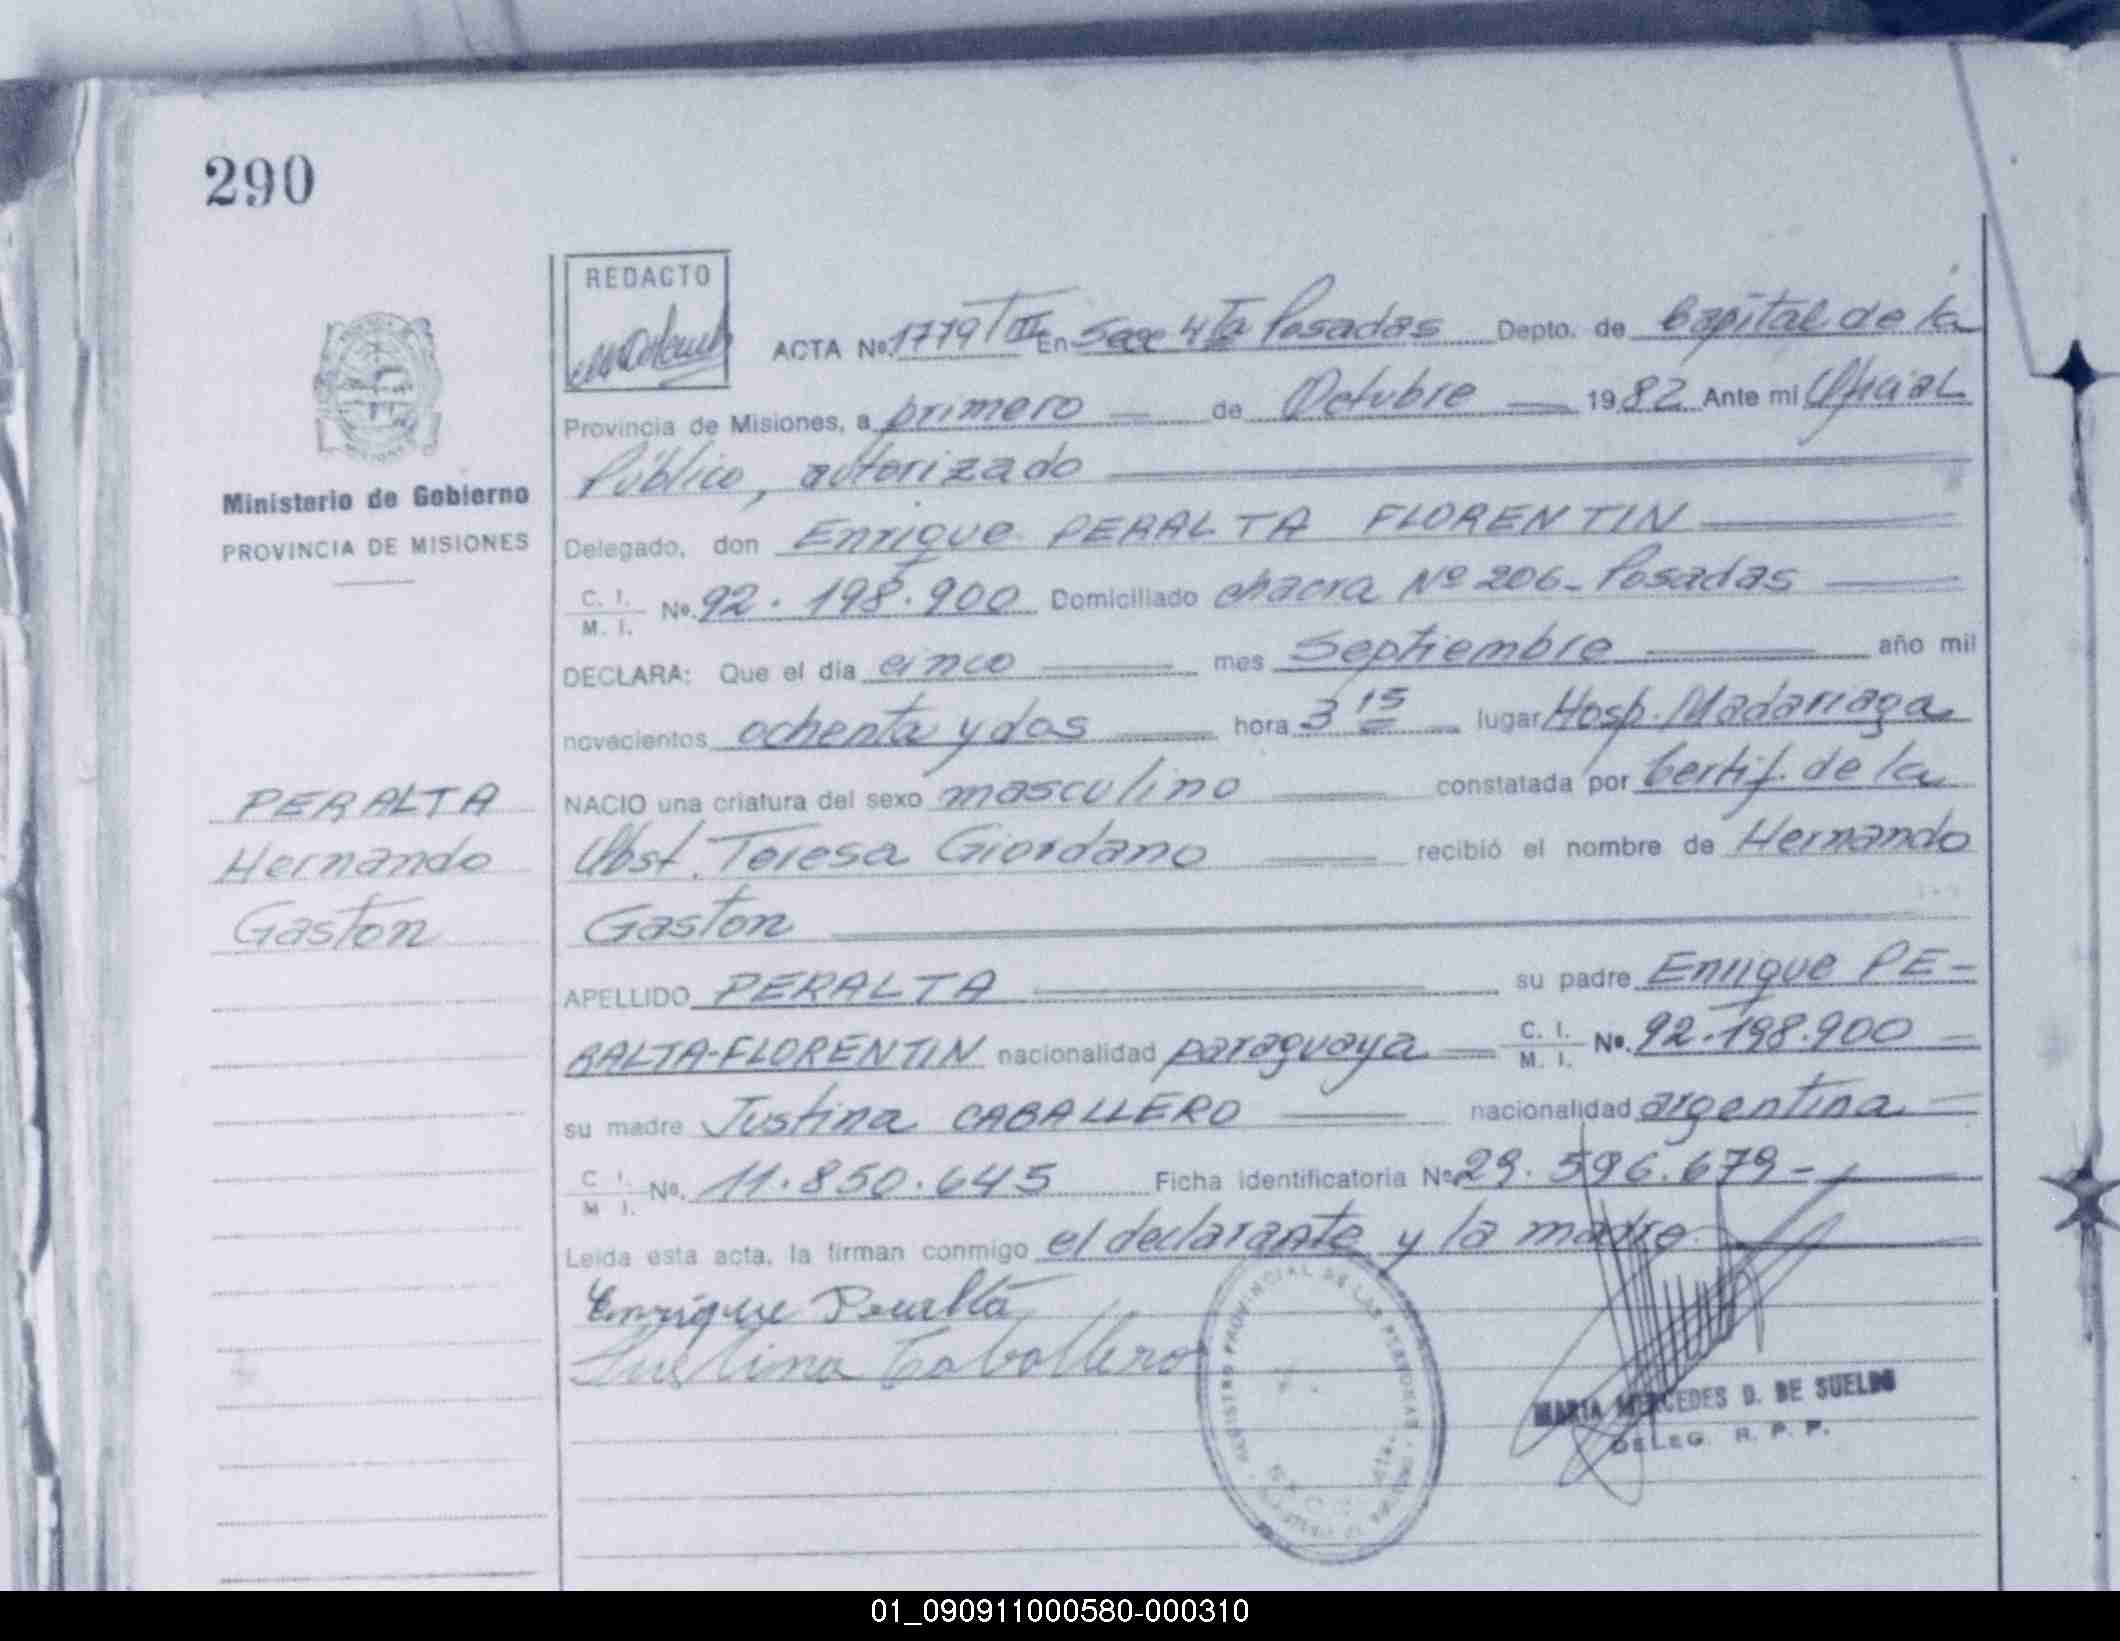 290
REDACTO
ACTA Nº 1779 TIII En Secc 4ta Posadas Depto. de Capital de la
Provincia de Misiones, a primero de Octubre 1982 Ante mi Oficial
Público, autorizado
Ministerio de Gobierno
PROVINCIA DE MISIONES
Delegado, don Enrique PERALTA FLORENTIN
C. I. M. I. Nº. 92.198.900 Domiciliado chacra Nº 206- Posadas
DECLARA: Que el día cinco mes Septiembre año mil
novecientos ochenta y dos hora 3 15 lugar Hosp. Madariaga
NACIO una criatura del sexo masculino constatada por Certif. de la
Obst. Teresa Giordano recibió el nombre de Hernando
Gaston
PERALTA
Hernando
Gaston
APELLIDO PERALTA su padre Enrique PE-
RALTA-FLORENTIN nacionalidad paraguaya C. I. M. I. Nº. 92.198.900
su madre Justina CABALLERO nacionalidad argentina
C. I. M. I. Nº. 11.850.645 Ficha identificatoria Nº 29.596.679-
Leída esta acta, la firman conmigo el declarante y la madre
Enrique Peralta
Justina Caballero
REGISTRO PROVINCIAL DE LAS PERSONAS
MARIA MERCEDES D. DE SUELDO
DELEG. R. P. P.
01_090911000580-000310